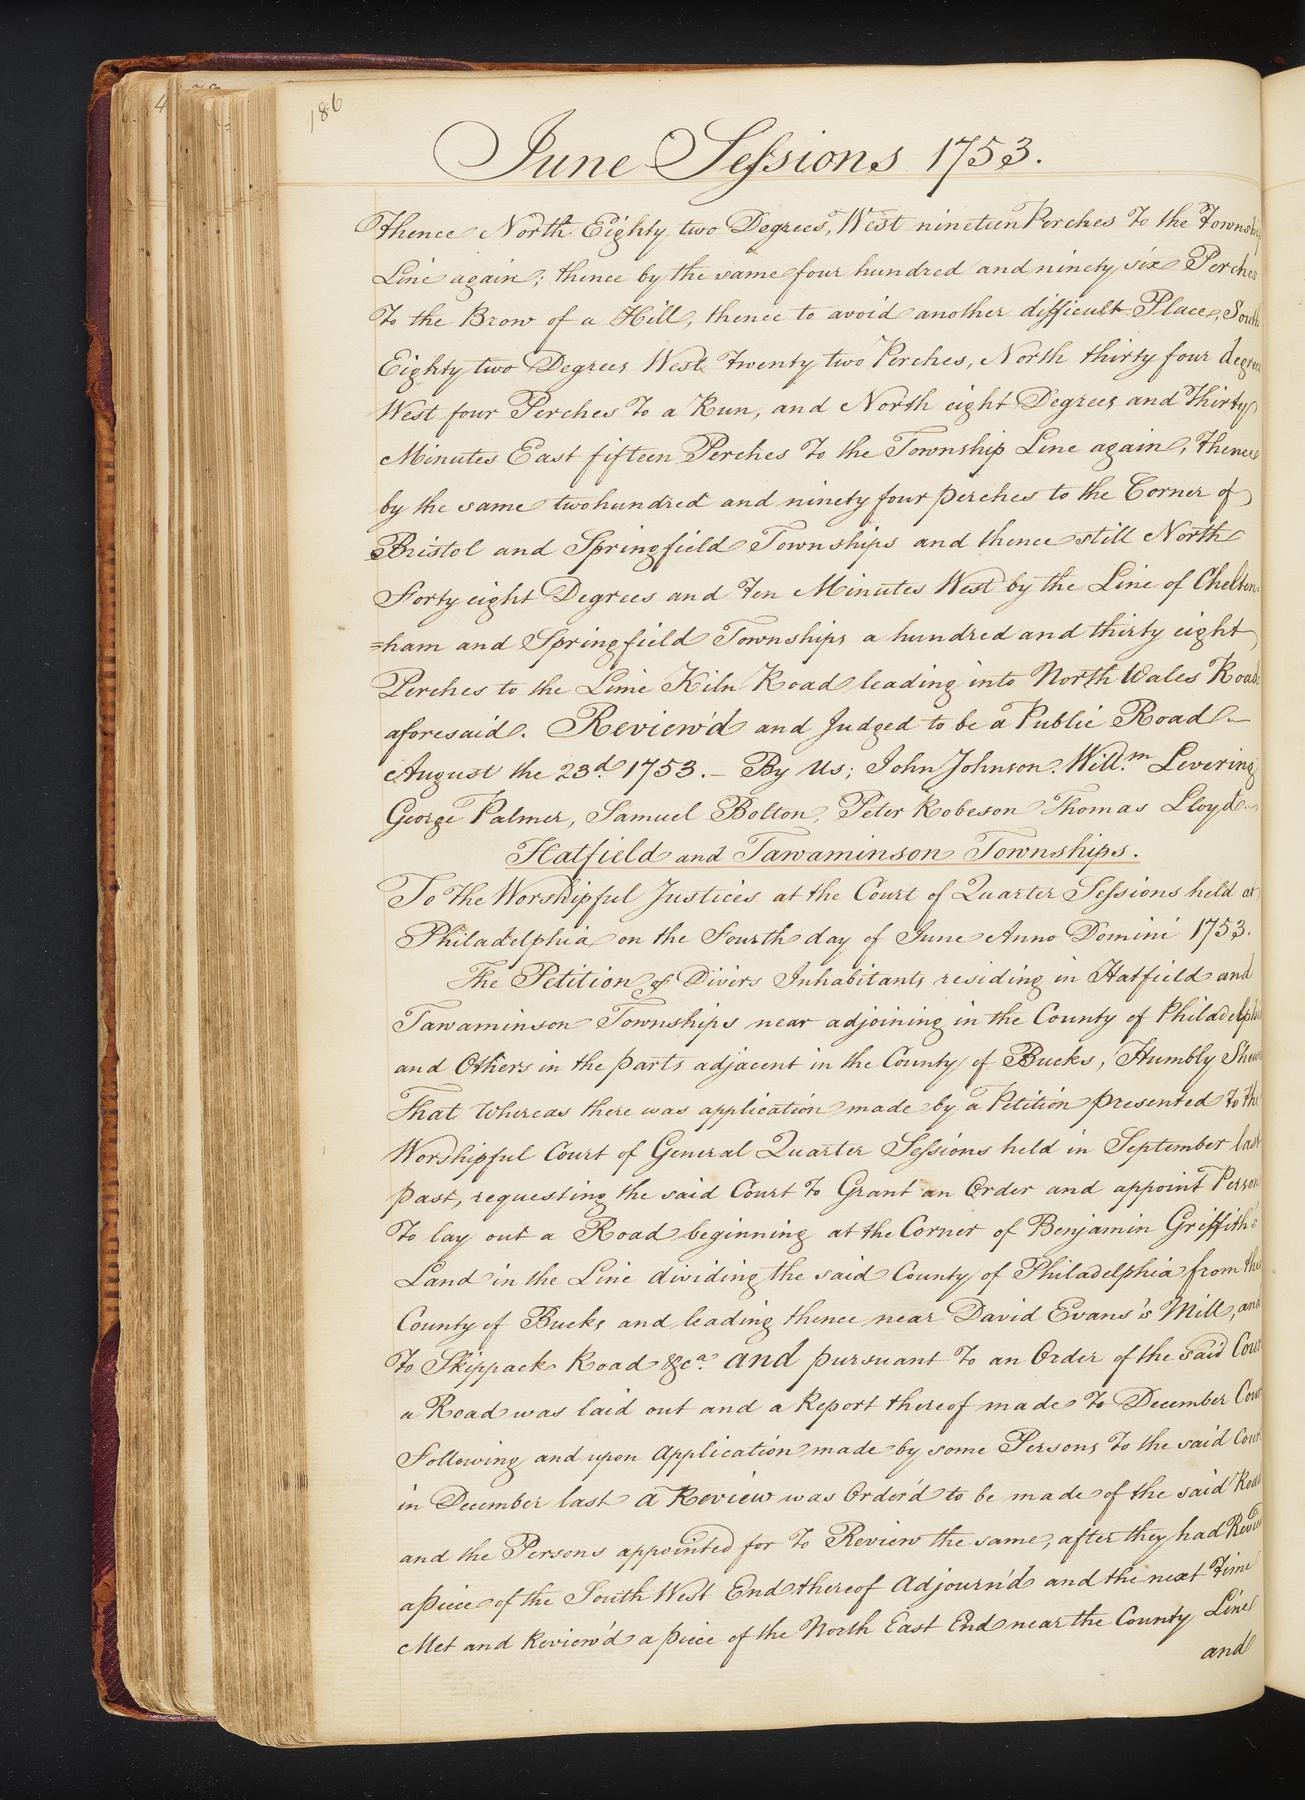 186
June Sessions 1753.
thence North Eighty two Degrees, West nineteen Perches To the Township
Line again; thence by the same four hundred and ninety six Perches
To the Brow of a Hill, thence to avoid another difficult Place, South
Eighty two Degrees West Twenty two Perches, North thirty four degrees
West four Perches To a Run, and North eight Degrees and Thirty
Minutes East fifteen Perches To the Township Line again, Thence
by the same two hundred and ninety four perches to the Corner of
Bristol and Springfield Townships and thence still North
Forty eight Degrees and Ten Minutes West by the Line of Chelten=
=ham and Springfield Townships a hundred and thirty eight
Perches to the Lime Kiln Road leading into North Wales Road
aforesaid. Review'd and Judged to be a Public Road –
August the 23d. 1753. – By Us; John Johnson. Will.m Levering
George Palmer, Samuel Bolton, Peter Robeson Thomas Lloyd –
Hatfield and Tawaminson Townships.
To the Worshipful Justices at the Court of Quarter Sessions held at
Philadelphia on the Fourth day of June Anno Domini 1753.
The Petition of Divers Inhabitants residing in Hatfield and
Tawaminson Townships near adjoining in the County of Philadelphia
and Others in the parts adjacent in the County of Bucks, Humbly Shew
That Whereas there was application made by a Petition presented To the
Worshipful Court of General Quarter Sessions held in September last
past, requesting the said Court To Grant an Order and appoint Person
To lay out a Road beginning at the Corner of Benjamin Griffith's
Land in the Line dividing the said County of Philadelphia from the
County of Bucks and leading thence near David Evans's Mill, and
To Skippack Road &ca. and pursuant To an Order of the said Court
a Road was laid out and a Report thereof made To December Court
Following and upon Application made by some Persons To the said Court
in December last a Review was Order'd to be made of the said Road
and the Persons appointed for To Review the same, after they had
a piece of the South West End thereof Adjourn'd and the next Time
Met and Review'd a piece of the North East End near the County Line
and